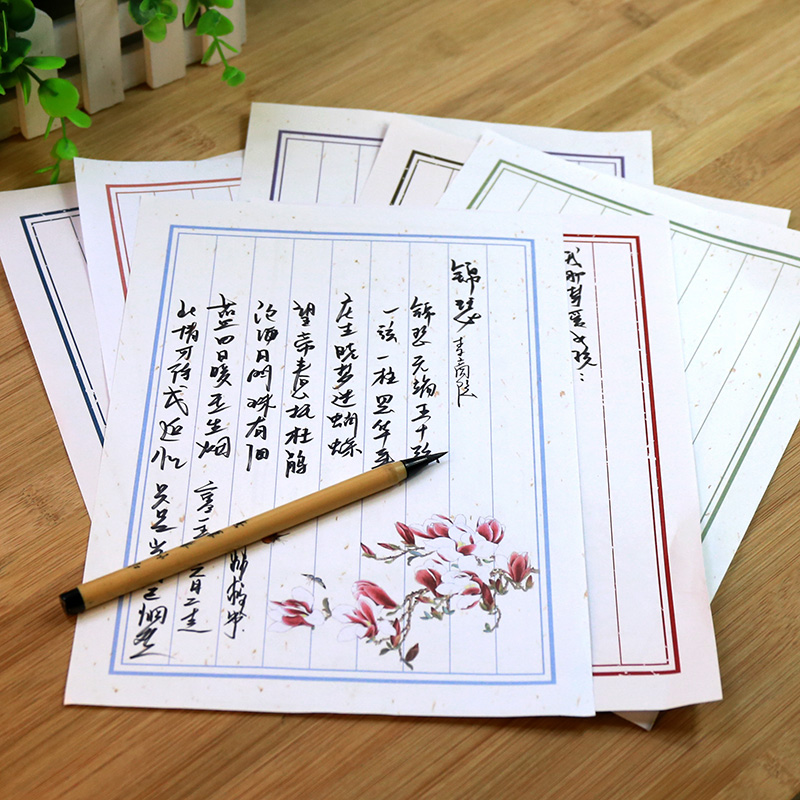 锦瑟 李商隐
锦瑟无端五十弦
一弦一柱思华年
庄生晓梦迷蝴蝶
望帝春心托杜鹃
沧海月明珠有泪
蓝田日暖玉生烟
此情可待成追忆 只是当时已惘然